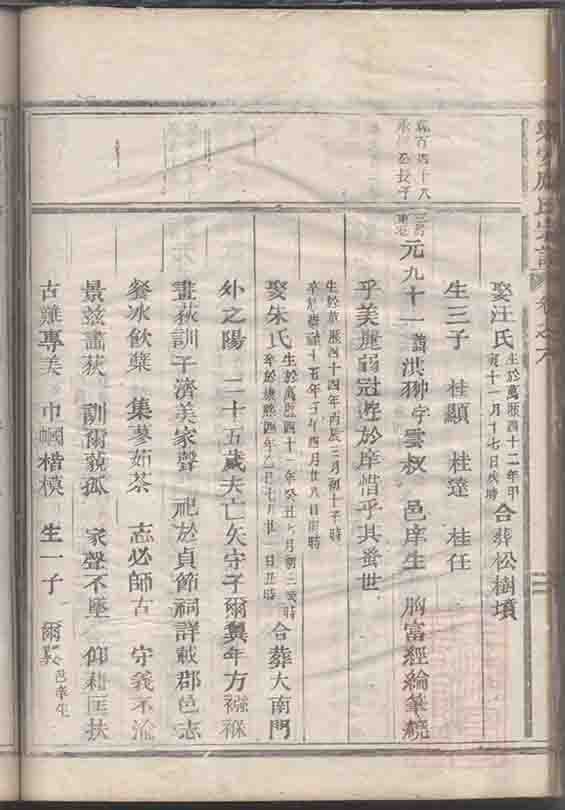 氏宗譜 卷之八
娶汪氏 生於萬厯四十二年甲寅十一月十七日戌時 合葬松樹墳
生三子 桂顯 桂達 桂任
元九十一 諱洪翀字雲叔 邑庠生 胸富經綸筆繞
乎美麗弱冠遊於庠惜乎其蚤世
生於萬厯四十四年丙辰三月初十子時
卒於崇禎十五年壬午四月廿八日 時
娶朱氏 生於萬厯四十一年癸丑七月初二 時 卒於康熙四年乙巳七月廿一日丑時 合葬大南門
外之陽 二十五歲夫亡矢守子爾翼年方襁褓
畫荻訓子濟美家聲 祀於貞節祠詳載郡邑志
餐冰飲蘗 集蓼茹荼 志必師古 守義不渝
景兹畵荻 訓爾藐孤 家聲不墜 仰藉匡扶
古難專美 巾幗楷模 生一子 爾翼 邑庠生